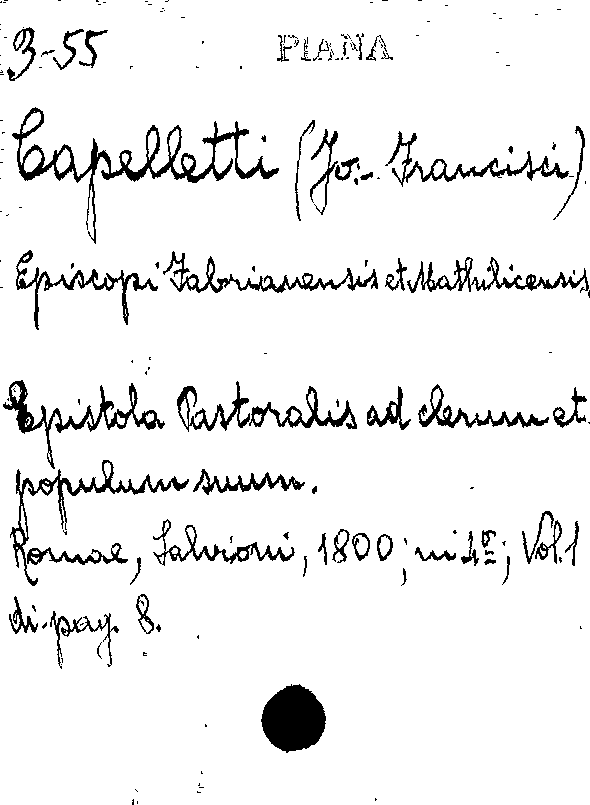 3-55 PIANA
Capelletti (Jo:- Francisci)
Episcopi Fabrianensis et Mathelicensis
Epistola Pastoralis ad clerum et
populum suum.
Romae, Salvioni, 1800; in 4º; Vol. 1
di pag. 8.